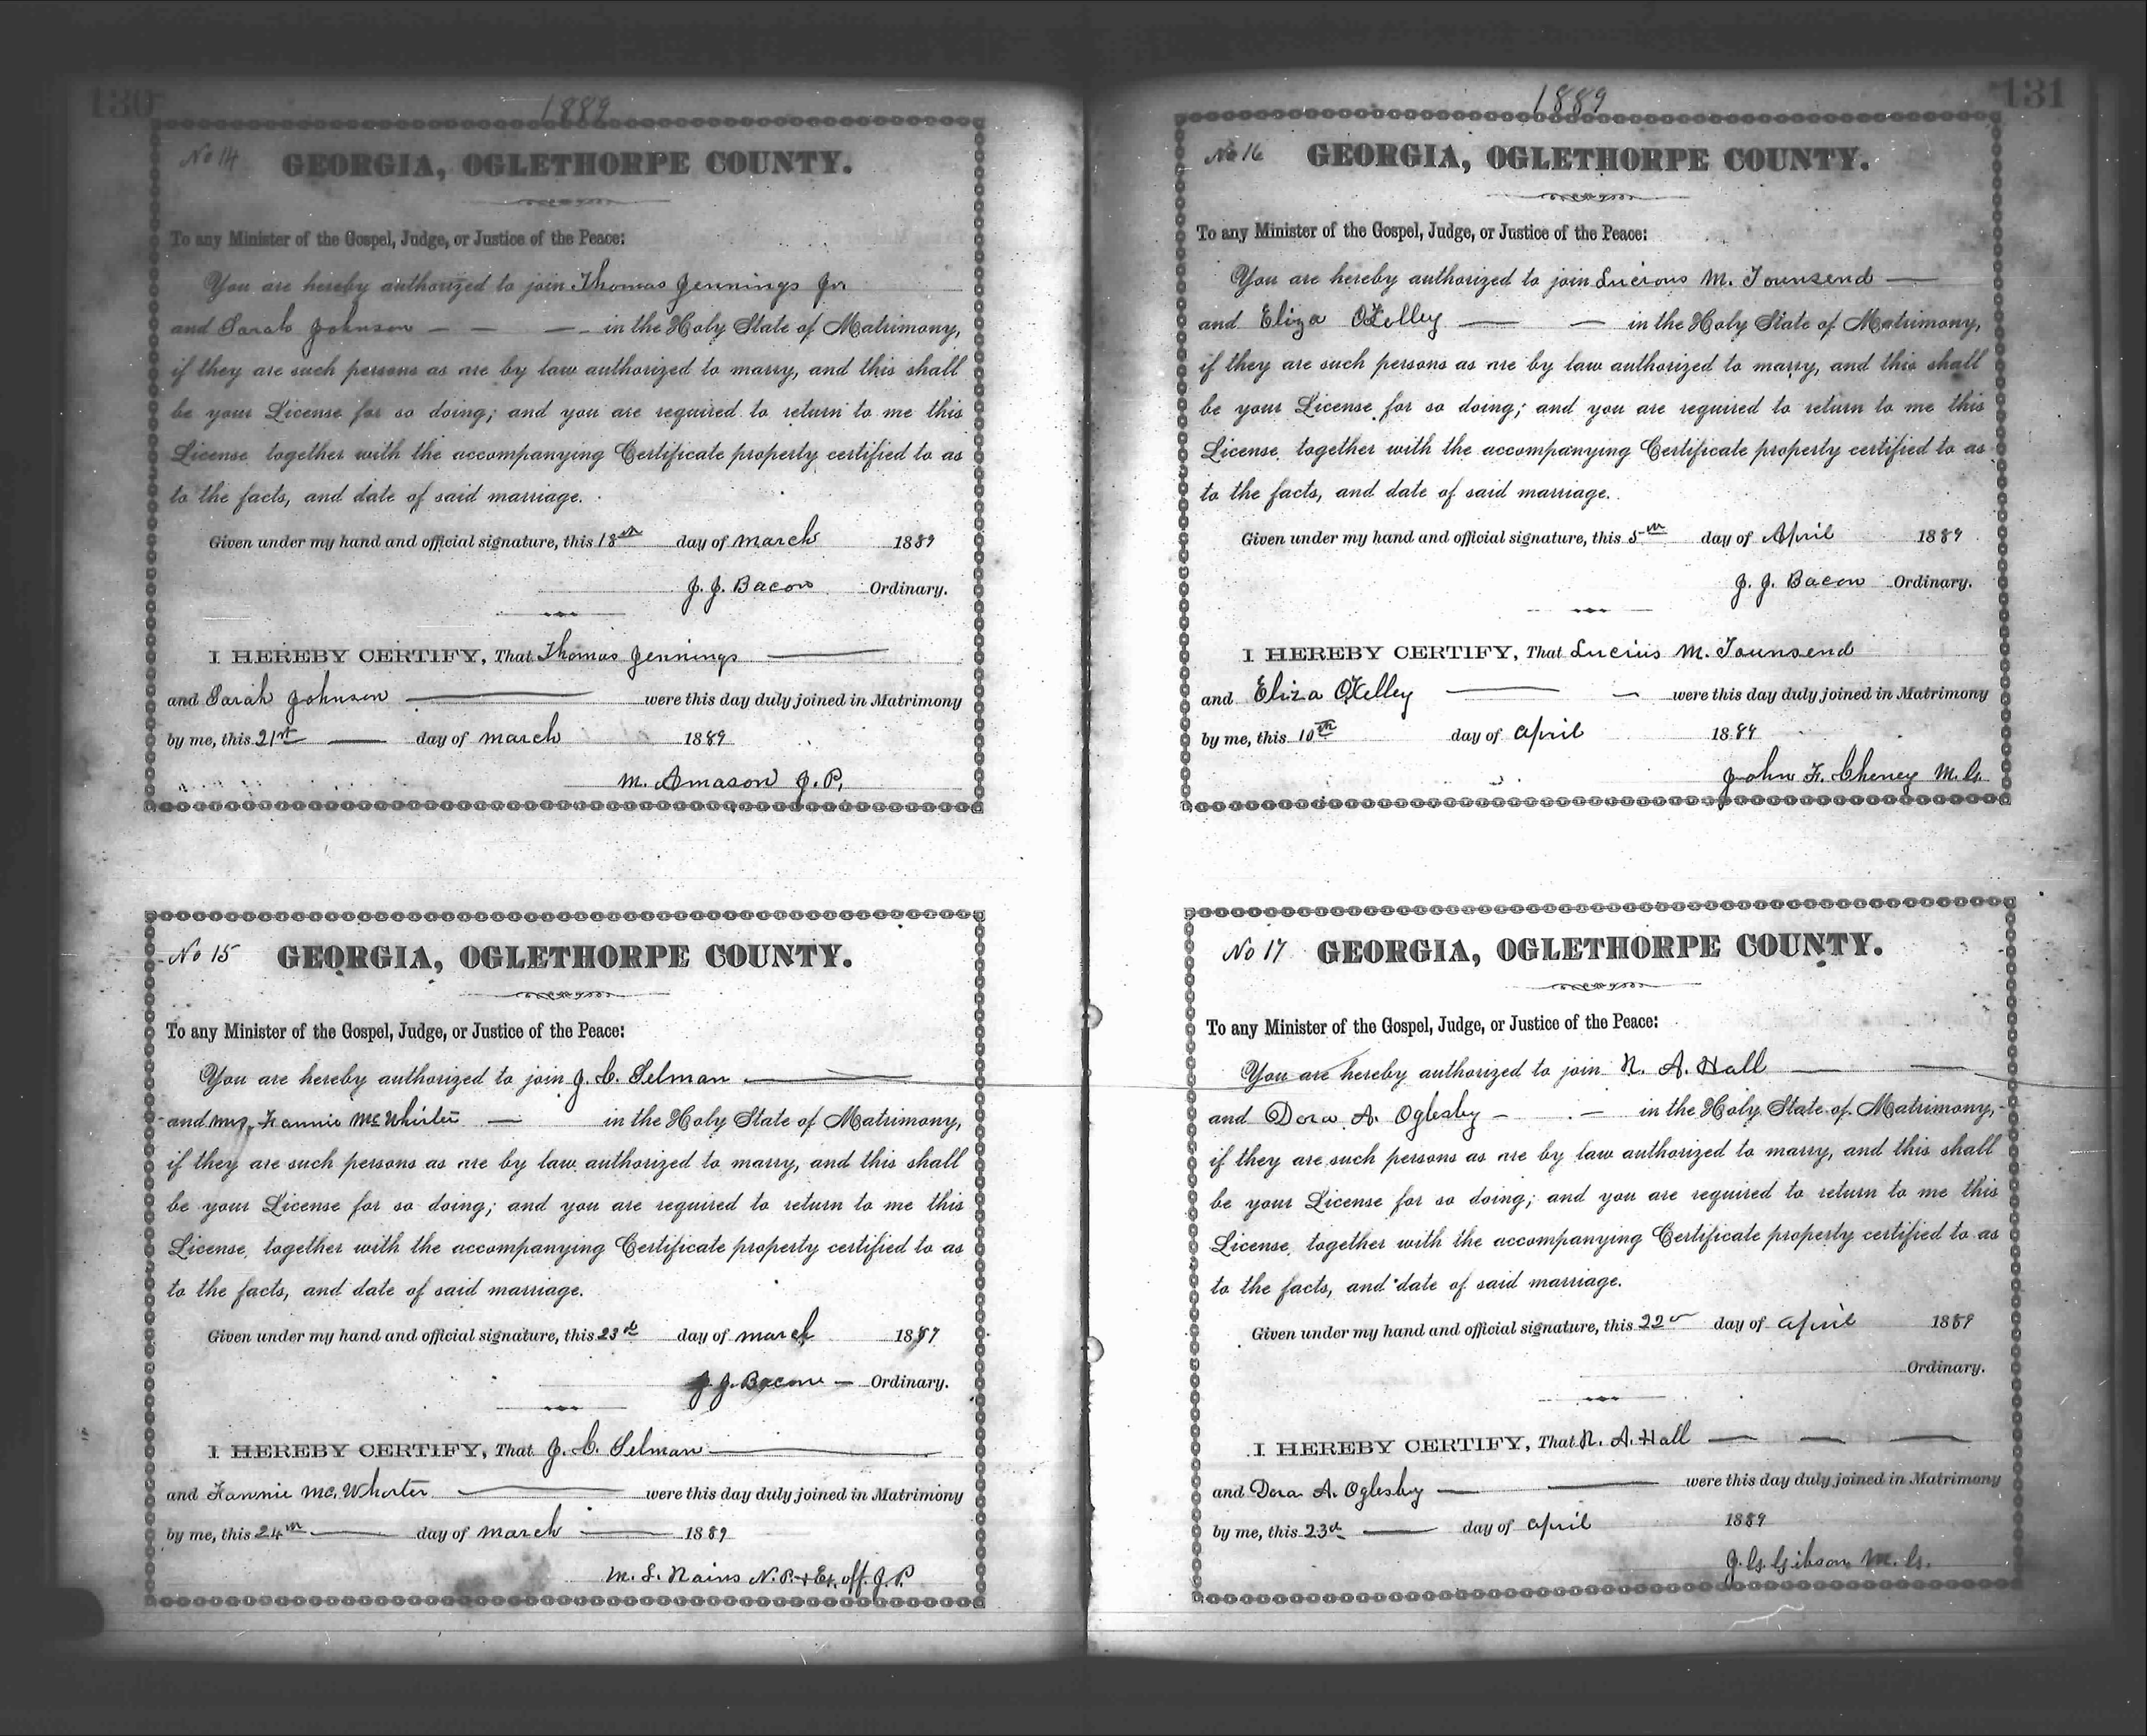 130
1889
No 14 GEORGIA, OGLETHORPE COUNTY.
To any Minister of the Gospel, Judge, or Justice of the Peace:
You are hereby authorized to join Thomas Jennings Jr
and Sarah Johnson — — — in the Holy State of Matrimony,
if they are such persons as are by law authorized to marry, and this shall
be your License for so doing; and you are required to return to me this
License, together with the accompanying Certificate property certified to as
to the facts, and date of said marriage.
Given under my hand and official signature, this 18th day of march 1889
J. J. Bacon Ordinary.
I HEREBY CERTIFY, That Thomas Jennings —
and Sarah Johnson — were this day duly joined in Matrimony
by me, this 21st — day of march 1889
M. Amason J. P.
No 15 GEORGIA, OGLETHORPE COUNTY.
To any Minister of the Gospel, Judge, or Justice of the Peace:
You are hereby authorized to join J. C. Selman —
and Mrs. Fannie McWhirter — in the Holy State of Matrimony,
if they are such persons as are by law authorized to marry, and this shall
be your License for so doing; and you are required to return to me this
License, together with the accompanying Certificate property certified to as
to the facts, and date of said marriage.
Given under my hand and official signature, this 23d day of march 1889
J. J. Bacon — Ordinary.
I HEREBY CERTIFY, That J. C. Selman —
and Fannie McWhorter — were this day duly joined in Matrimony
by me, this 24th — day of march — 1889
M. L. Rains N. P. & Ex. off. J. P.
131
1889
No 16 GEORGIA, OGLETHORPE COUNTY.
To any Minister of the Gospel, Judge, or Justice of the Peace:
You are hereby authorized to join Lucious M. Townsend —
and Eliza OKelley — — in the Holy State of Matrimony,
if they are such persons as are by law authorized to marry, and this shall
be your License for so doing; and you are required to return to me this
License, together with the accompanying Certificate property certified to as
to the facts, and date of said marriage.
Given under my hand and official signature, this 5th day of April 1889
J. J. Bacon Ordinary.
I HEREBY CERTIFY, That Lucius M. Townsend
and Eliza OKelley — — were this day duly joined in Matrimony
by me, this 10th day of April 1889
John F. Cheney M. G.
No 17 GEORGIA, OGLETHORPE COUNTY.
To any Minister of the Gospel, Judge, or Justice of the Peace:
You are hereby authorized to join N. A. Hall — —
and Dora A. Oglesby — — in the Holy State of Matrimony,
if they are such persons as are by law authorized to marry, and this shall
be your License for so doing; and you are required to return to me this
License, together with the accompanying Certificate property certified to as
to the facts, and date of said marriage.
Given under my hand and official signature, this 22d day of April 1889
Ordinary.
I HEREBY CERTIFY, That N. A. Hall — — —
and Dora A. Oglesby — — were this day duly joined in Matrimony
by me, this 23d — day of April 1889
J. G. Gibson M. G.